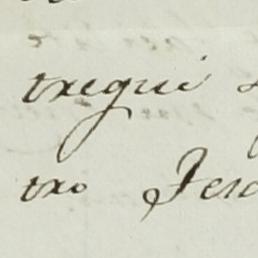 tregui
tro Fer